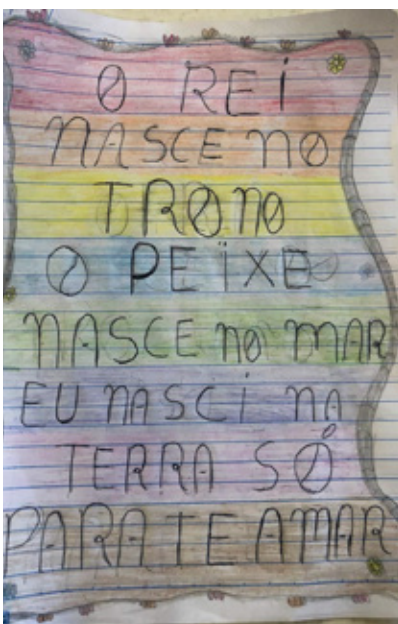 O REI
NASCE NO
TRONO
O PEIXE
NASCE NO MAR
EU NASCI NA
TERRA SÓ
PARA TE AMAR